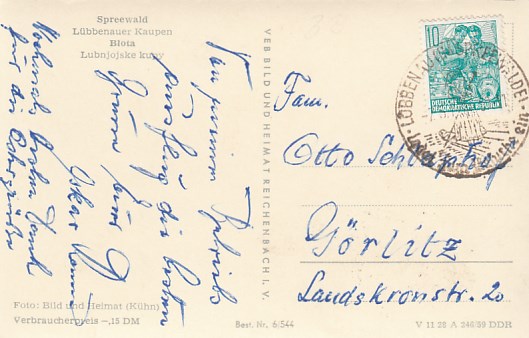 Spreewald
Lübbenauer Kaupen
Błota
Lubnjojske kupy
Von unserem Betriebs
ausflug die besten
Grüsse
Nochmals besten Dank
für die
Foto: Bild und Heimat (Kühn)
Verbraucherpreis -,15 DM
VEB BILD UND HEIMAT REICHENBACH I. V.
Best. Nr. 6/544
10
DEUTSCHE
DEMOKRATISCHE REPUBLIK
LÜBBENAU (SPREEWALD)
Fam.
Otto
Görlitz
Landskronstr. 20
V 11 28 A 246/59 DDR